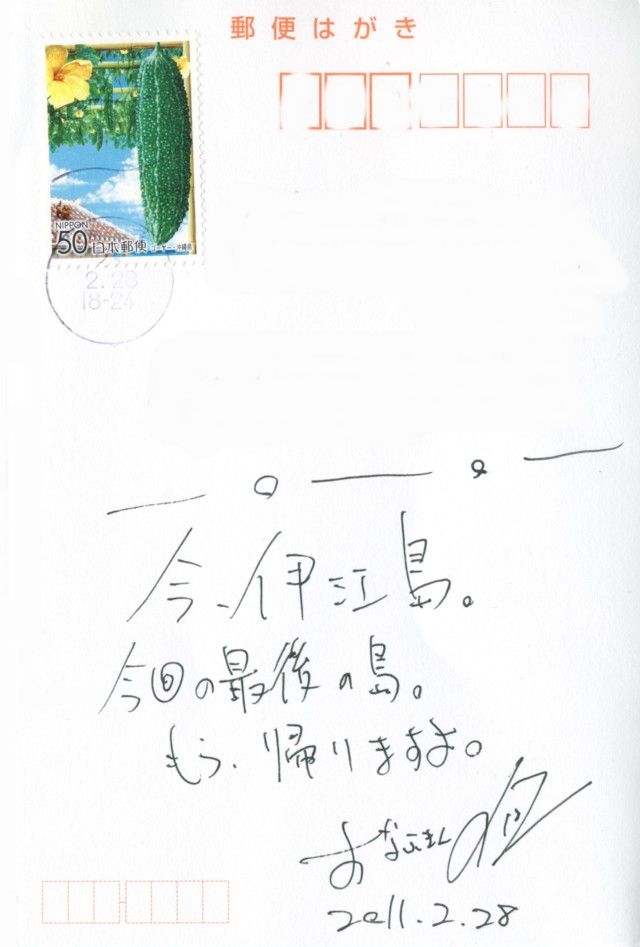 郵便はがき
NIPPON
50 日本郵便 ゴーヤー・沖縄県
2.28
18-24
今、伊江島。
今回の最後の島。
もう、帰ります。
2011.2.28